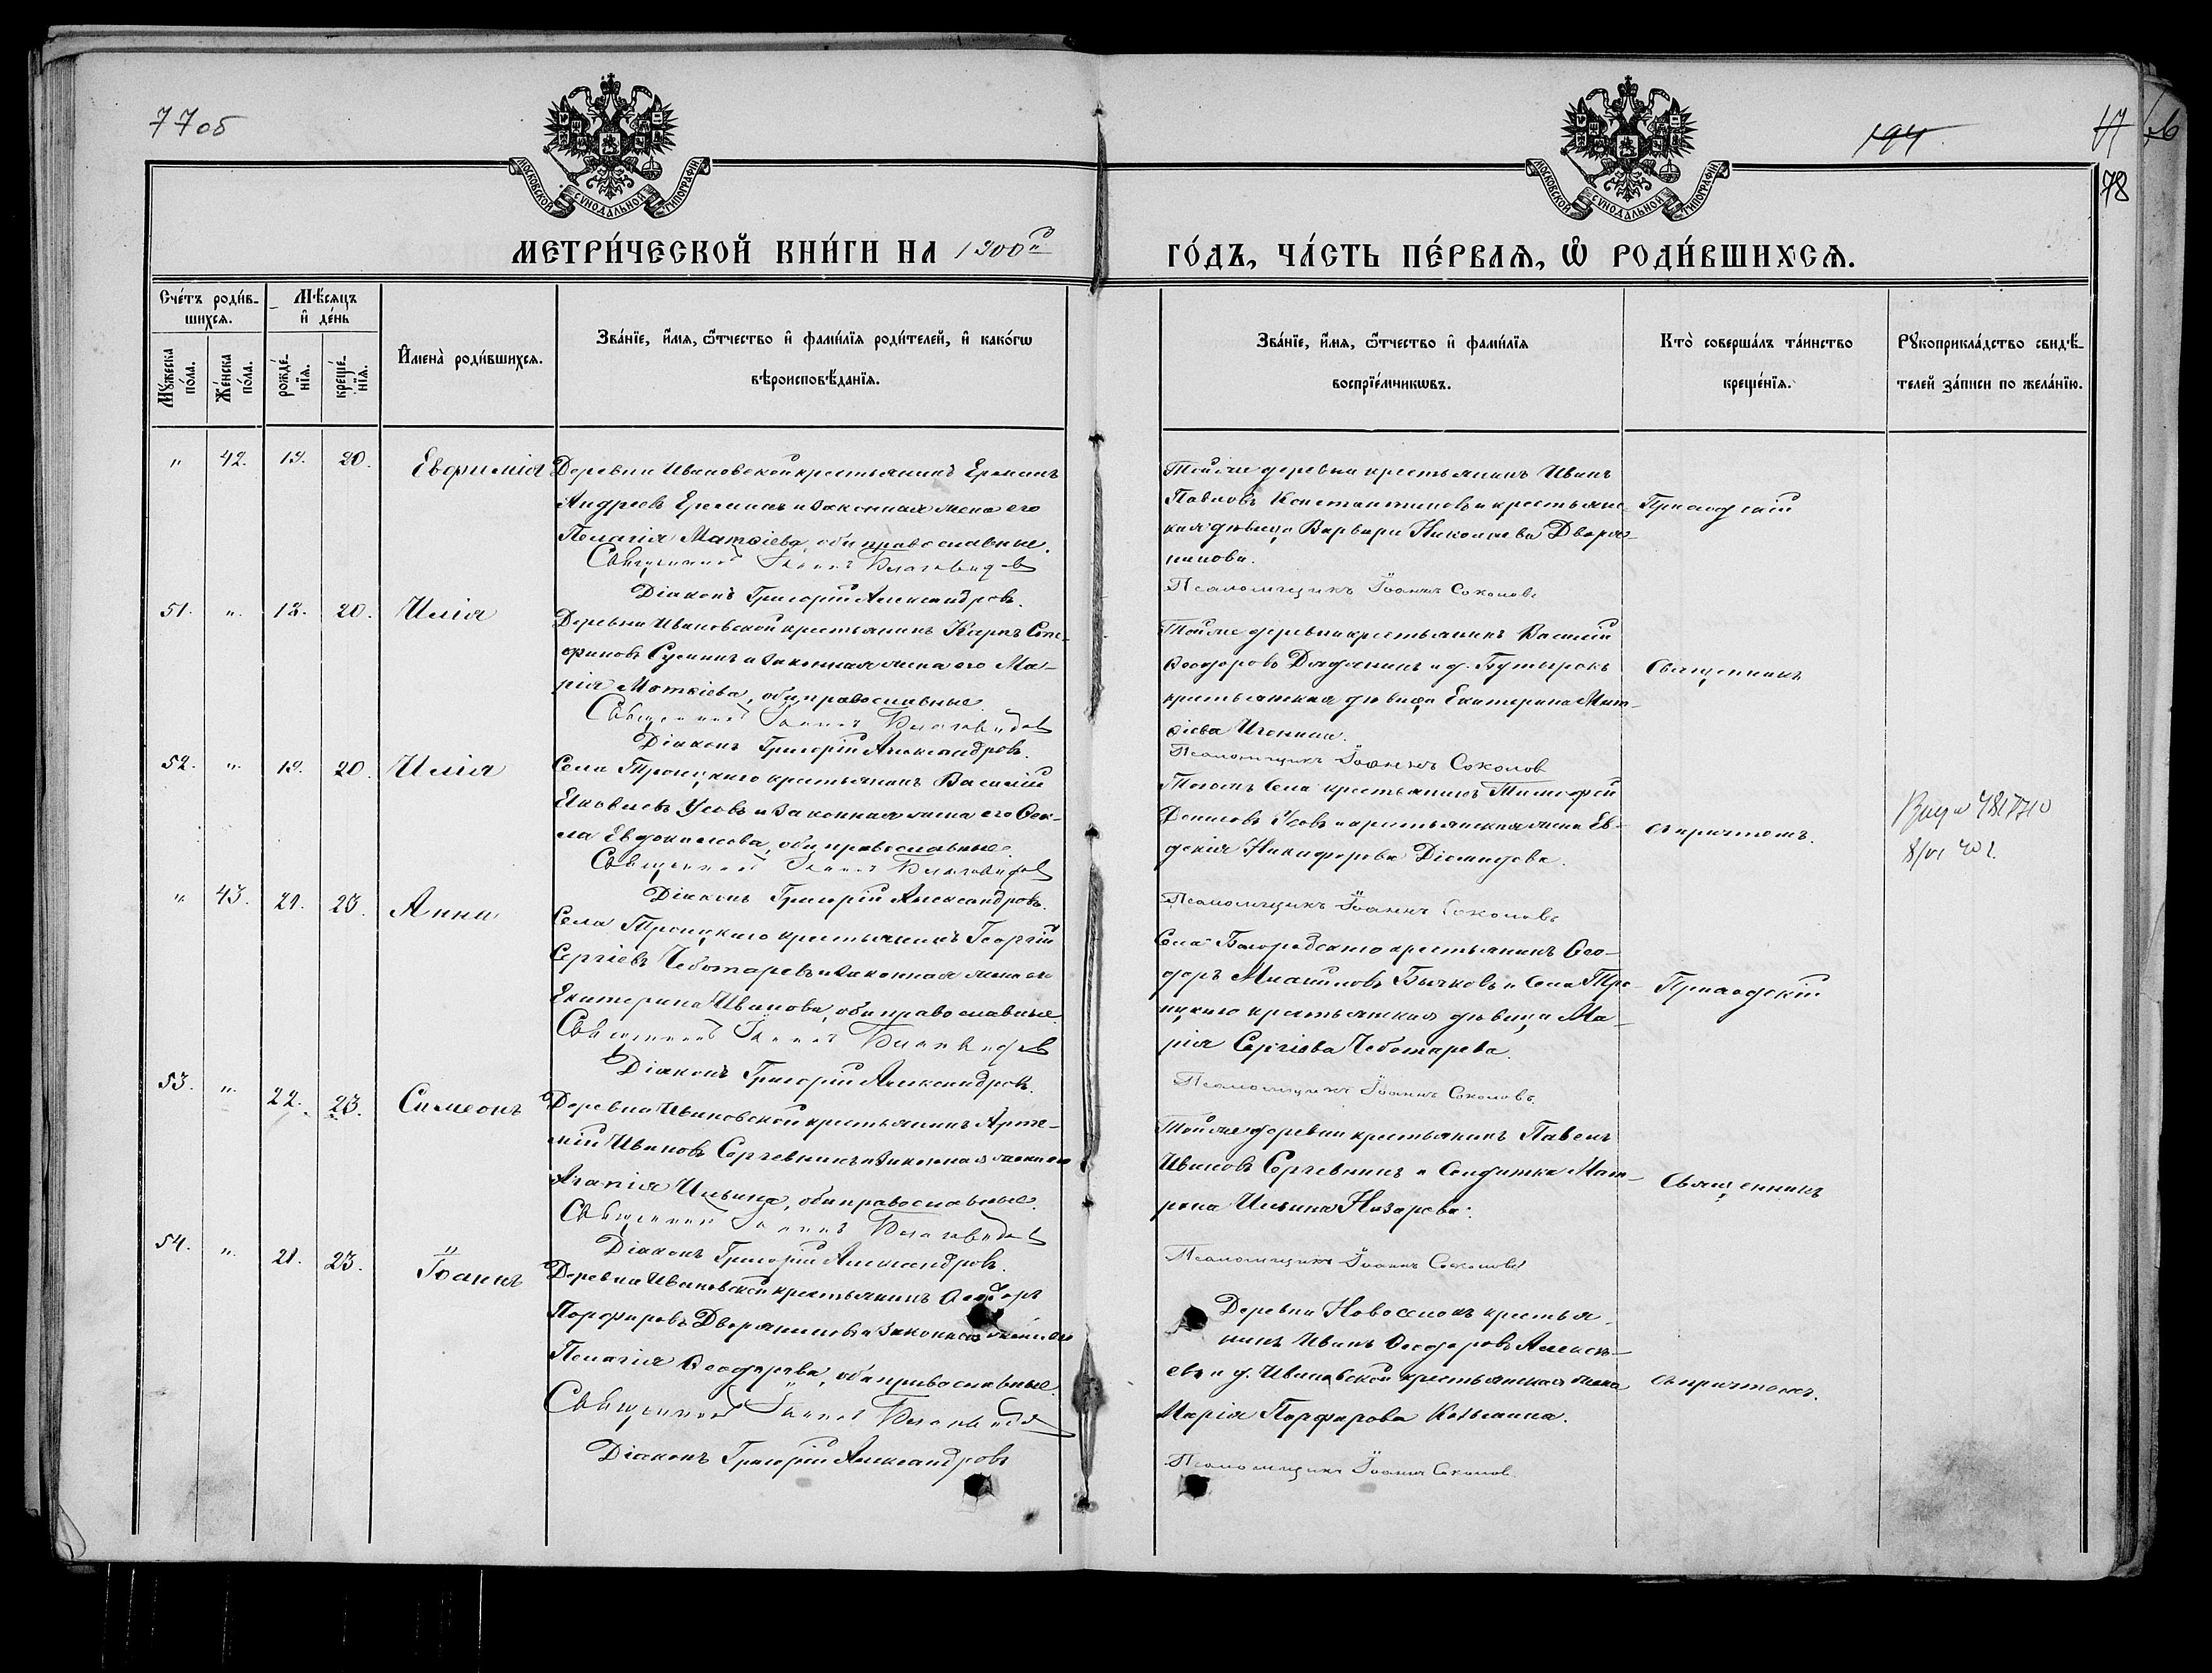 77об
194
17
78
МОСКОВСКОЙ СУНОДАЛЬНОЙ ТИПОГРАФІИ
МОСКОВСКОЙ СУНОДАЛЬНОЙ ТИПОГРАФІИ
МЕТРИ́ЧЕСКОЙ КНИ́ГИ НА 1900й
ГО́ДЪ, ЧА́СТЬ ПЕ́РВАѦ, Ѽ РОДИ́ВШИХСѦ.
Сче́тъ роди́в-
шихсѧ.
Мѣ́сѧцъ
и҆ де́нь
Мꙋ́жеска
по́ла.
Же́нска
по́ла.
рожде́-
нїѧ.
креще́-
нїѧ.
И҆мена̀ роди́вшихсѧ.
Зва́нїе, и҆́мѧ, ѻ҆́тчество и҆ фами́лїѧ роди́телей, и҆ како́гѡ
вѣроисповѣ́данїѧ.
Зва́нїе, и҆́мѧ, ѻ҆́тчество и҆ фами́лїѧ
воспрїе́мникѡвъ.
Кто̀ соверша́лъ та́инство
креще́нїѧ.
Рꙋкоприкла́дство свидѣ́-
телей за́писи по жела́нїю.
" 42. 19. 20. Евфимія
Деревни Ивановской крестьянинъ
Андреевъ Ереминъ и законная жена его
Пелагія Матѳіева, оба православные.
Священникъ Іоаннъ Благовидовъ
Діаконъ Григорій Александровъ.
Той же деревни крестьянинъ Иванъ
Павловъ Константиновъ и крестьянс-
кая дѣвица Варвара Николаева Дворя-
нинова.
Псаломщикъ Іоаннъ Соколовъ
Приходскій
51. " 18. 20. Илія
Деревни Ивановской крестьянинъ Карпъ Сте-
фановъ и законная жена его Ма-
рія Матѳіева, оба православные.
Священникъ Іоаннъ Благовидовъ
Діаконъ Григорій Александровъ.
Той же деревни крестьянинъ Василій
Ѳеодоровъ и д. Бутырокъ
крестьянская дѣвица Екатерина Мат-
ѳіева
Псаломщикъ Іоаннъ Соколовъ
Священникъ
52. " 19. 20. Илія
Села Троицкаго крестьянинъ Василій
Яковлевъ Усовъ и законная жена его Ѳек-
ла Евдокимова, оба православные.
Священникъ Іоаннъ Благовидовъ
Діаконъ Григорій Александровъ.
Тогожъ села крестьянинъ Тимофей
Денисовъ Усовъ и крестьянская жена Ев-
докія Никифорова Діомидова.
Псаломщикъ Іоаннъ Соколовъ
съ причтомъ.
" 43. 21. 23. Анна
Села Троицкаго крестьянинъ Георгій
Сергіевъ Чеботаревъ и законная жена его
Екатерина Иванова, оба православные.
Священникъ Іоаннъ Благовидовъ
Діаконъ Григорій Александровъ.
Села Богородскаго крестьянинъ Ѳео-
доръ Михайловъ Бычковъ и села Тро-
ицкаго крестьянская дѣвица Ма-
рія Сергіева Чеботарева.
Псаломщикъ Іоаннъ Соколовъ.
Приходскій
53. " 22. 23. Симеонъ
Деревни Ивановской крестьянинъ Арте-
мій Ивановъ и законная жена его
Агапія Ильина, оба православные.
Священникъ Іоаннъ Благовидовъ
Діаконъ Григорій Александровъ.
Той же деревни крестьянинъ Павелъ
Ивановъ и солдатка Мат-
рона Ильина Назарова.
Псаломщикъ Іоаннъ Соколовъ
Священникъ
54. " 21. 23. Іоаннъ
Деревни Ивановской крестьянинъ Ѳеодоръ
Порфировъ Дворяниновъ и законная жена его
Пелагія Ѳеодорова, оба православные.
Священникъ Іоаннъ Благовидовъ
Діаконъ Григорій Александровъ
Деревни Новоселокъ крестья-
нинъ Иванъ Ѳеодоровъ Алексѣ-
евъ и д. Ивановской крестьянская жена
Марія Порфирова
Псаломщикъ Іоаннъ Соколовъ.
съ причтомъ.